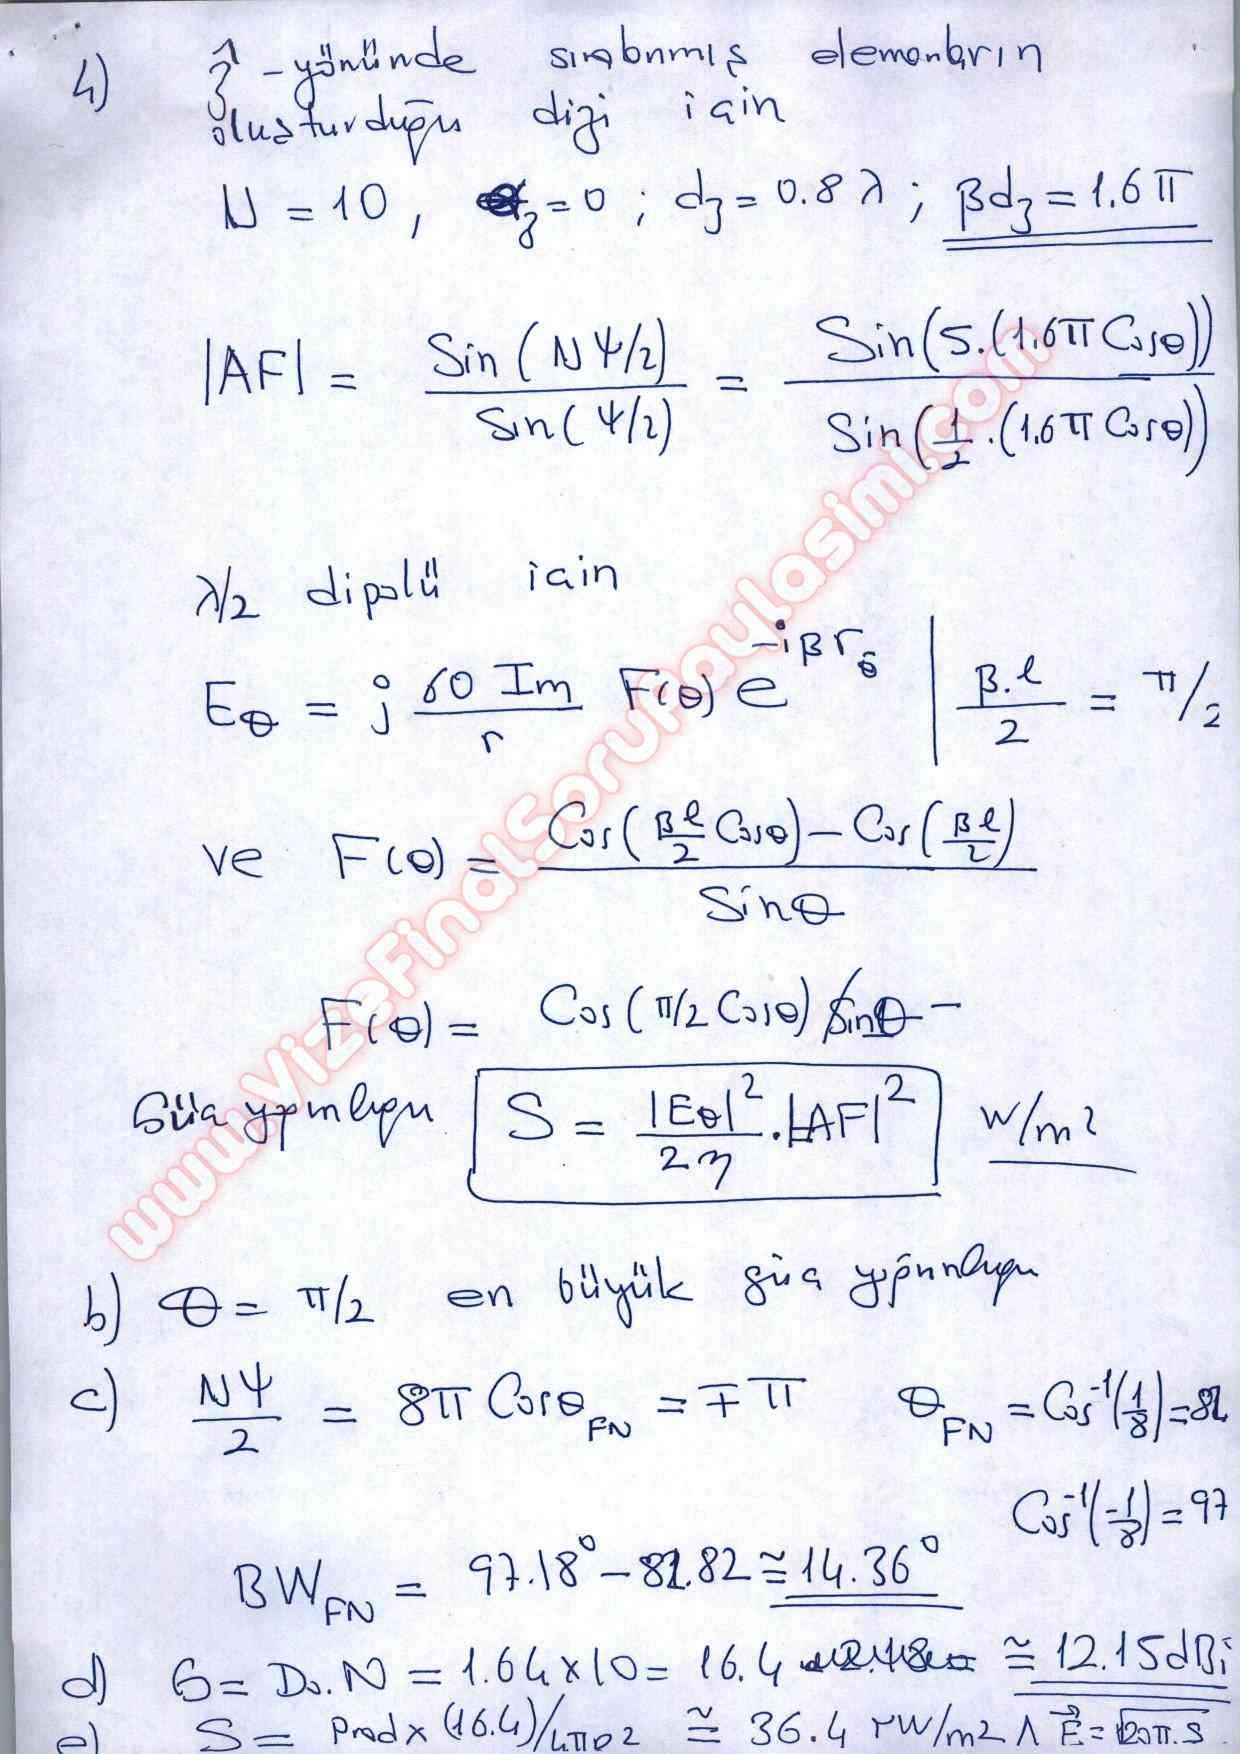 4) ẑ -yönünde sıralanmış elemanların
oluşturduğu dizi için
N = 10 , α_z = 0 ; d_z = 0.8 λ ; βd_z = 1.6 π
|AF| = Sin ( N Ψ/2) / Sin ( Ψ/2) = Sin(5.(1.6π Cosθ)) / Sin(1/2 .(1.6 π Cosθ))
λ/2 dipolü için
E_θ = j 60 Im / r F(θ) e^-jβr | β.l / 2 = π/2
ve F(θ) = Cos(βl/2 Cosθ) – Cos(βl/2) / Sinθ
F(θ) = Cos(π/2 Cosθ) / Sinθ –
Güç yoğunluğu S = |Eθ|² / 2η . |AF|² W/m²
b) θ = π/2 en büyük güç yoğunluğu
c) NΨ / 2 = 8π Cosθ_FN = ∓ π θ_FN = Cos⁻¹(1/8) = 82
Cos⁻¹(-1/8) = 97
BW_FN = 97.18° – 82.82 ≅ 14.36°
d) G = Do. N = 1.64 x 10 = 16.4 ≅ 12.15 dBi
e) S = Prad x (16.4)/4π ≅ 36.4 W/m2 Λ E⃗ = √120π.S
www.VizeFinalSoruPaylasimi.com